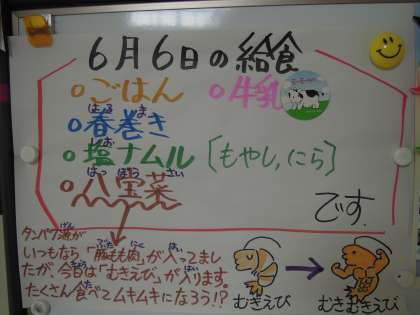 6月6日の給食
○ごはん ○牛乳
○春巻き
○塩ナムル〔もやし,にら〕
○八宝菜
です。
タンパク源が
いつもなら「豚もも肉」が入ってまし
たが、今日は「むきえび」が入ります。
たくさん食べてムキムキになろう!?
むきえび → むきむきえび